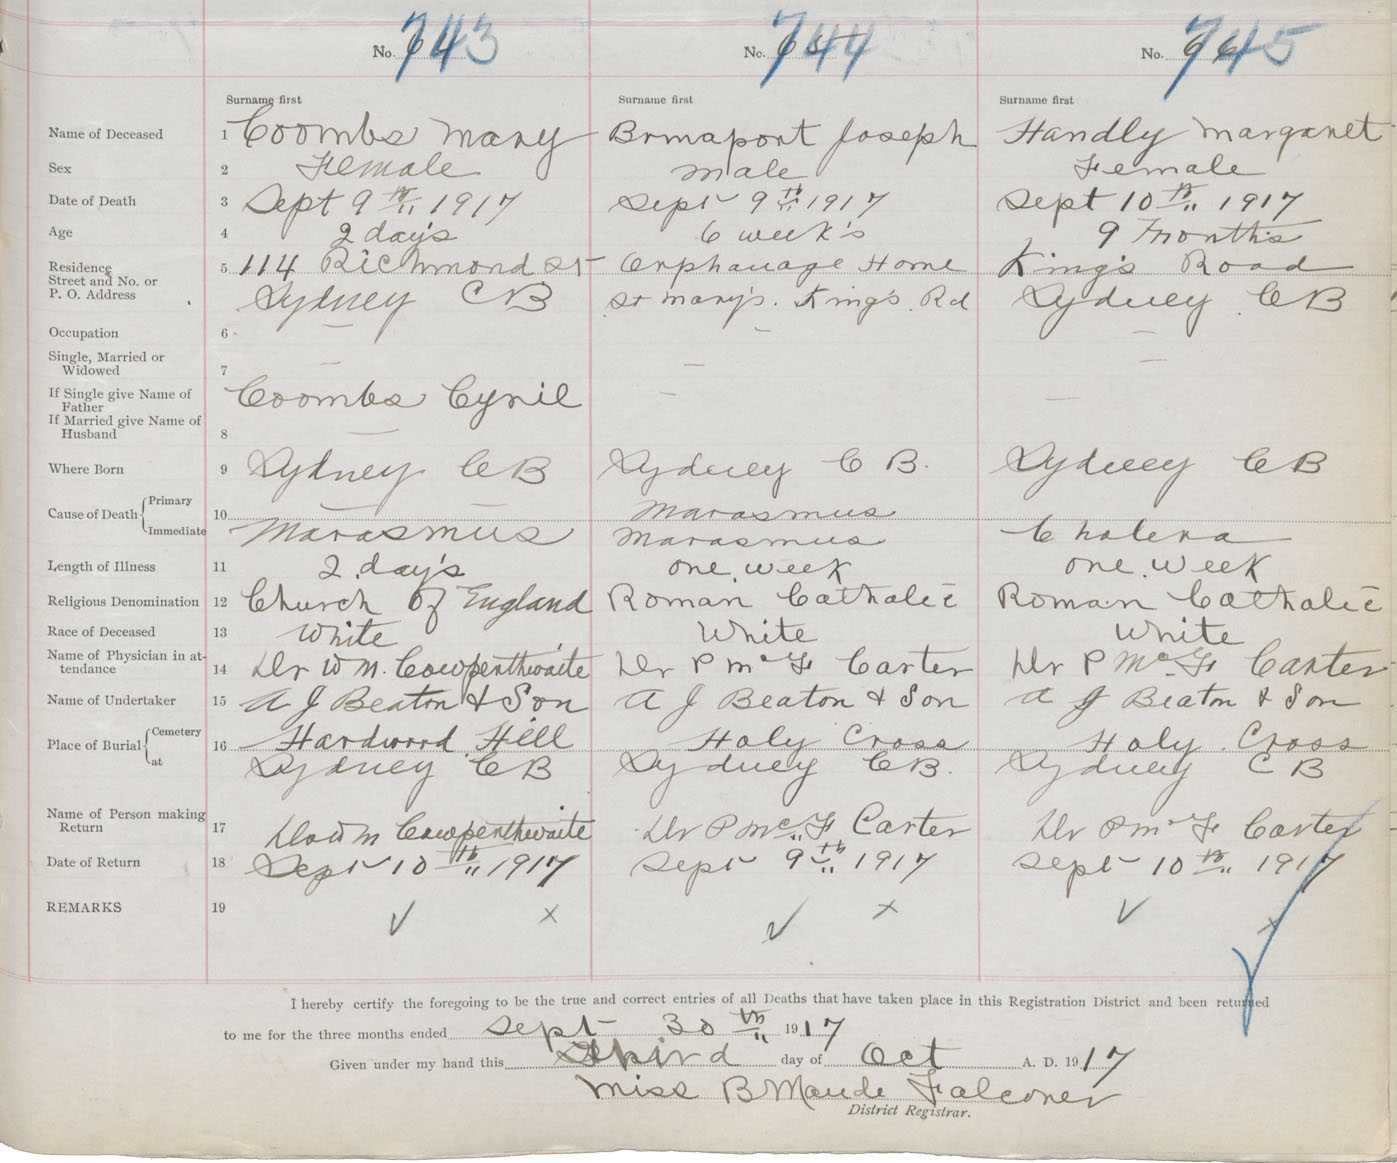 No. 64 743
No. 65 744
No. 66 745
Surname first Surname first Surname first
Name of Deceased 1 Coombs Mary Brmaport Joseph Handly Margaret
Sex 2 Female Male Female
Date of Death 3 Sept 9th 1917 Sept 9th 1917 Sept 10th 1917
Age 4 2 day's 6 week's 9 Months
Residence 5 114 Richmond St Orphanage Home King's Road
Street and No. or
P. O. Address Sydney C B St Mary's. King's. Rd Sydney C B
Occupation 6 – – –
Single, Married or
Widowed 7 – – –
If Single give Name of
Father Coombs Cyril – –
If Married give Name of
Husband 8 –
Where Born 9 Sydney C B Sydney C B. Sydney C B
Cause of Death Primary 10 – – Marasmus
Immediate Marasmus Marasmus Cholera
Length of Illness 11 2 day's one week one week
Religious Denomination 12 Church Of England Roman Catholic Roman Catholic
Race of Deceased 13 White White White
Name of Physician in at-
tendance 14 Dr W M. Cowperthwaite Dr P McF Carter Dr P McF Carter
Name of Undertaker 15 A J Beaton & Son A J Beaton & Son A J Beaton & Son
Place of Burial Cemetery 16 Hardwood Hill Holy Cross Holy Cross
at Sydney C B Sydney C B. Sydney C B
Name of Person making
Return 17 W M Cowperthwaite Dr P McF Carter Dr P McF Carter
Date of Return 18 Sept 10th 1917 Sept 9th 1917 Sept 10th 1917
REMARKS 19 ✓ x ✓ x ✓ x
I hereby certify the foregoing to be the true and correct entries of all Deaths that have taken place in this Registration District and been returned
to me for the three months ended Sept 30th 1917
Given under my hand this Third day of Oct A. D. 1917
Miss B Maude Falconer
District Registrar.